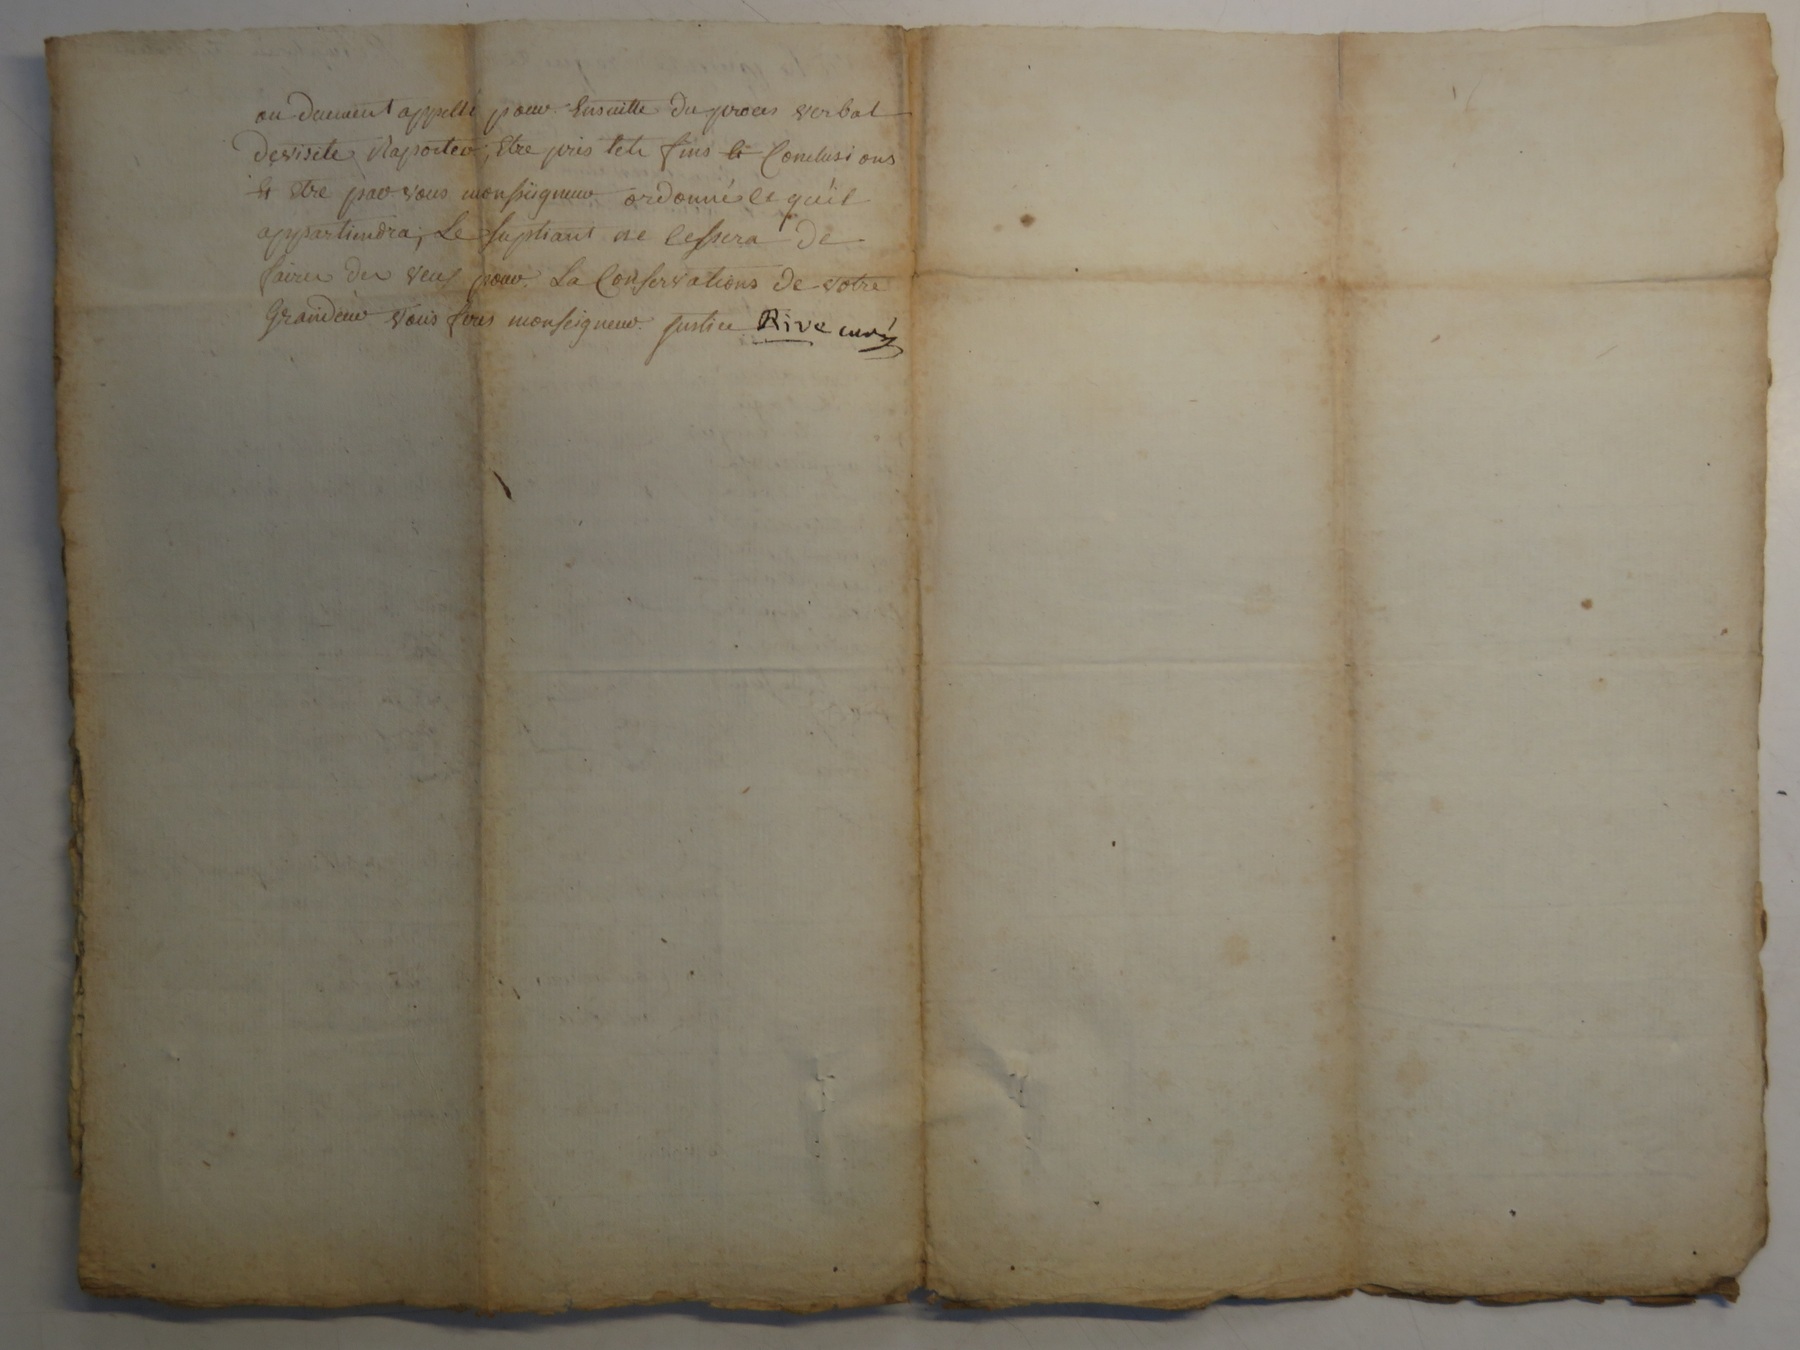 ou dument appellé pour Ensuitte du proces verbal
devisite Raporter, Etre pris tele fins et Conclusions
Et Etre par vous monseigneur ordonné ce qúil
appartiendra, Le supliant ne cessera de
faire der veux pour La Conservations de votre
Grandeur vous feres monseigneur justice Rive curé